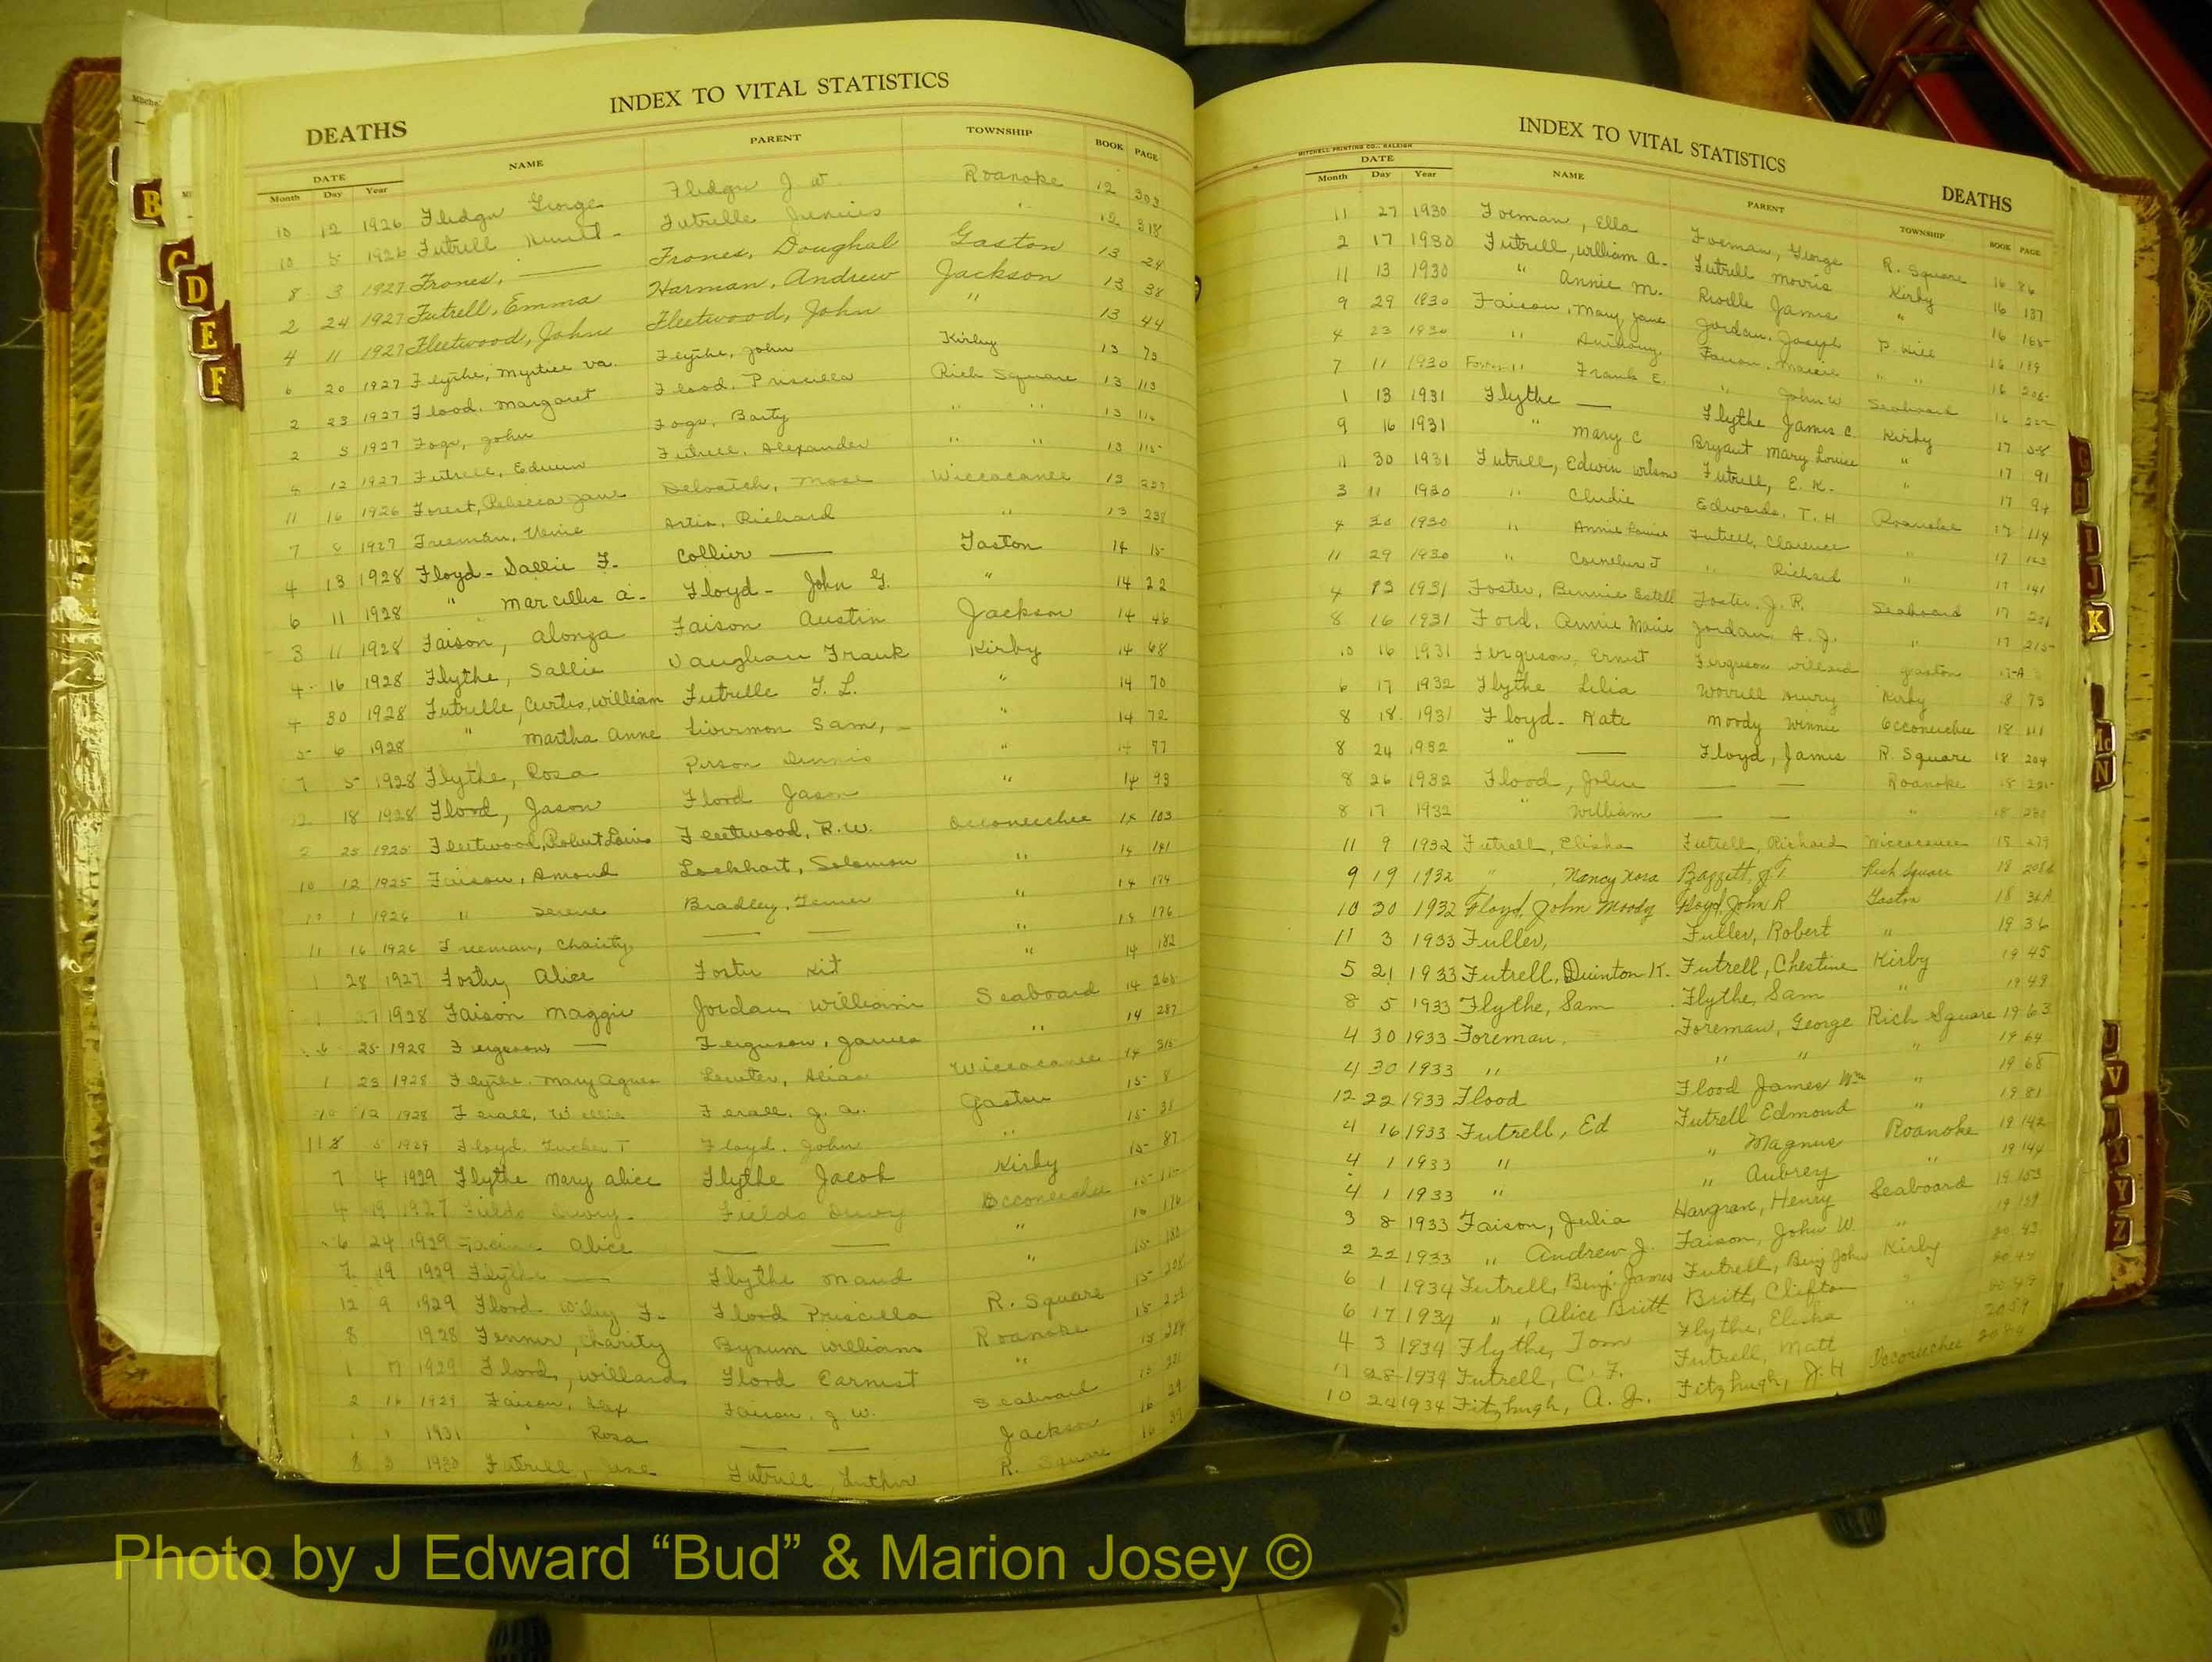 INDEX TO VITAL STATISTICS
DEATHS
DATE NAME PARENT TOWNSHIP BOOK PAGE
Month Day Year
10 12 1926 George J W Roanoke 12 303
10 5 1926 Futrell Futrelle Junius " 12 318
8 3 1927 Frones, — Frones, Doughal Gaston 13 24
2 24 1927 Futrell, Emma Harman, Andrew Jackson 13 38
4 11 1927 Fleetwood, John Fleetwood, John " 13 44
6 20 1927 Flythe, Myrtice Va. Flythe, John Kirby 13 75
2 23 1927 Flood, Margaret Flood, Priscilla Rich Square 13 113
2 5 1927 John Barty " " 13 114
4 12 1927 Futrell, Edwin Futrell, Alexander " " 13 115
11 16 1926 Forest, Rebecca Jane Deloatch, Mose Wiccacanee 13 227
7 8 1927 Freeman, Venie Artis, Richard " 13 238
4 13 1928 Floyd - Sallie F. Collier — Gaston 14 15
6 11 1928 " Marcillis A- Floyd - John G. " 14 22
3 11 1928 Faison, Alonza Faison Austin Jackson 14 46
4 16 1928 Flythe, Sallie Vaughan Frank Kirby 14 68
4 30 1928 Futrelle, Curtis, William Futrelle F. L. " 14 70
5 6 1928 " Martha Anne Livermon Sam, - " 14 72
7 5 1928 Flythe, Rosa Person Dennis " 14 77
12 18 1928 Flood, Jason Flood Jason " 14 93
25 1925 Fleetwood, Robert Louis Fleetwood, R. W. Occoneechee 14 103
10 12 1925 Faison, Amond Lockhart, Solomon " 14 141
10 1 1926 " Serene Bradley, " 14 174
11 16 1926 Freeman, Charity — — " 14 176
1 28 1927 Foster, Alice Foster Kit " 14 182
27 1928 Faison Maggie Jordan William Seaboard 14 265
6 25 1928 Ferguson, — Ferguson, James " 14 287
1 23 1928 Flythe, Mary Agnes Lewter, Wiccacanee 14 315
10 12 1928 Ferall, Willie Ferall, J. A. Gaston 15 8
5 1929 Floyd, Tucker T Floyd, John " 15 31
7 4 1929 Flythe Mary Alice Flythe Jacob Kirby 15 87
4 19 1927 Fields Fields Occoneechee 15
6 24 1929 Alice — — " 15 176
7 19 1929 Flythe — Flythe Maud " 15 180
12 9 1929 Flood - Wiley F. Flood Priscilla R. Square 15 208
8 1928 Fenner, Charity Bynum William Roanoke 15
1 17 1929 Flood, Willard Flood Earnest " 15 284
2 16 1929 Faison, Alex Faison, J W. Seaboard 15 321
1931 " Rosa — — Jackson 16 29
8 3 1930 Futrell, Futrell, Luther R. Square 16 39
INDEX TO VITAL STATISTICS
MITCHELL PRINTING CO., RALEIGH
DEATHS
DATE NAME PARENT TOWNSHIP BOOK PAGE
Month Day Year
11 27 1930 Foeman, Ella Foeman, George R. Square 16 86
2 17 1930 Futrell, William A. Futrell Morris Kirby 16 137
11 13 1930 " Annie M. James " 16 165
9 29 1930 Faison, Mary Jane Jordan, Joseph P. Hill 16 189
4 23 1930 " Anthony Faison, " " 16 205
7 11 1930 Foster " Frank E. " John W Seaboard 16 222
1 13 1931 Flythe — Flythe James C Kirby 17 58
9 16 1931 " Mary C Bryant Mary Louise " 17 91
11 30 1931 Futrell, Edwin Wilson Futrell, E. K. " 17 94
3 11 1930 " Cludie Edwards, T. H Roanoke 17 114
4 30 1930 " Annie Louise Futrell, Clarence " 17 123
11 29 1930 " Cornelius J " Richard " 17 141
4 13 1931 Foster, Bennie Estell Foster, J. R. Seaboard 17 201
8 16 1931 Ford, Annie Marie Jordan A. J. " 17 215
10 16 1931 Ferguson, Ernest Ferguson Willard Gaston 17-A
6 17 1932 Flythe Lilia Worrell Henry Kirby 18 73
8 18 1931 Floyd - Kate Moody Winnie Occoneechee 18 111
8 24 1932 " — Floyd, James R. Square 18 204
8 26 1932 Flood, John — — Roanoke 18 221
8 17 1932 " William — — " 18 230
11 9 1932 Futrell, Elisha Futrell, Richard Wiccacanee 18 279
9 19 1932 " , Nancy Nora Rich Square 18
10 30 1932 Floyd, John Moody Floyd, John R Gaston 18 36A
11 3 1933 Fuller, Fuller, Robert " 19 36
5 21 1933 Futrell, Quinton K. Futrell, Chestine Kirby 19 45
8 5 1933 Flythe, Sam Flythe, Sam " 19 49
4 30 1933 Foreman, Foreman, George Rich Square 19 63
4 30 1933 " " " " 19 64
12 22 1933 Flood Flood James Wm " 19 68
4 16 1933 Futrell, Ed Futrell Edmond " 19 81
4 1 1933 " " Magnus Roanoke 19 142
4 1 1933 " " Aubrey " 19 144
3 8 1933 Faison, Julia Hargrave, Henry Seaboard 19 153
2 22 1933 " Andrew J. Faison, John W. " 19 159
6 1 1934 Futrell, Benj. James Futrell, Benj John Kirby 20 43
6 17 1934 " , Alice Britt Britt, Clifton " 20 45
4 3 1934 Flythe, Tom Flythe, Elisha " 20 49
7 28 1934 Futrell, C. F. Futrell, Matt " 20 59
10 24 1934 Fitzhugh, A. J. Fitzhugh, J. H Occoneechee
B
C
D
E
F
G
H
I
J
K
Mc
N
U
V
X
Y
Z
Photo by J Edward “Bud” & Marion Josey ©